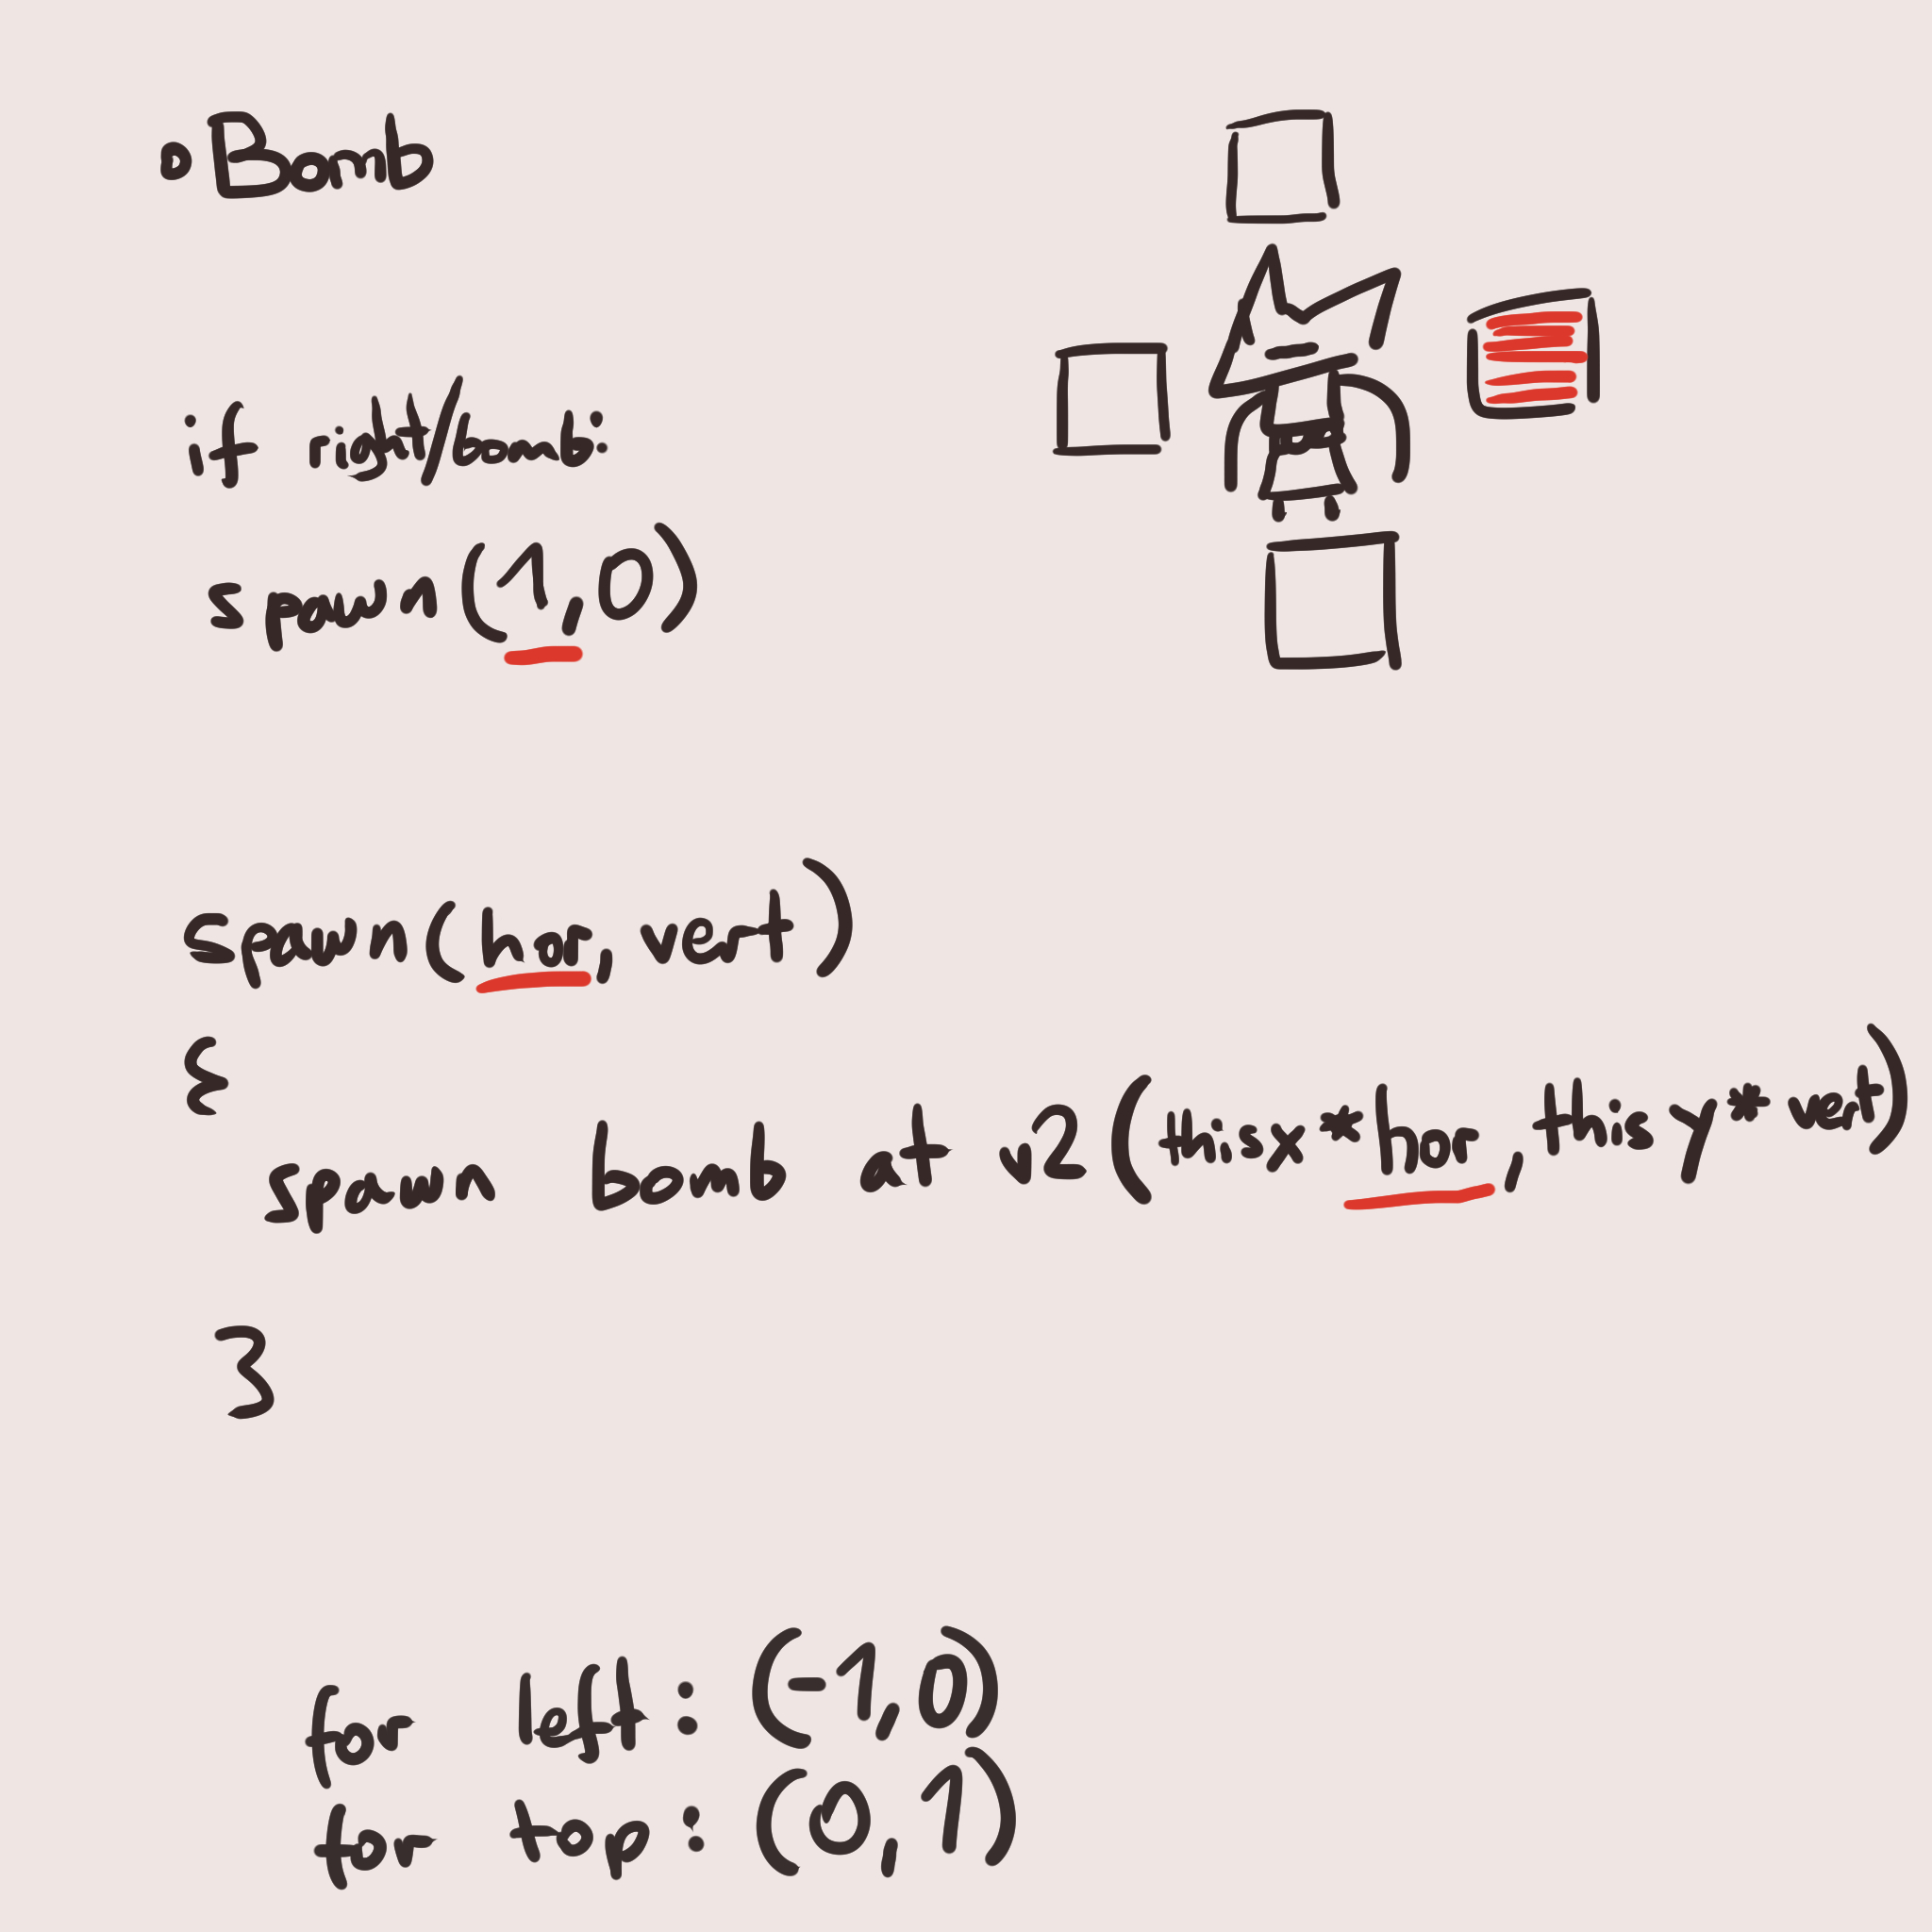 Bomb
if right/bomb:
spawn(1,0)
spawn(hor, vert)
{
spawn bomb at v2(thisx*hor, thisy*vert)
}
for left: (-1,0)
for top: (0,1)